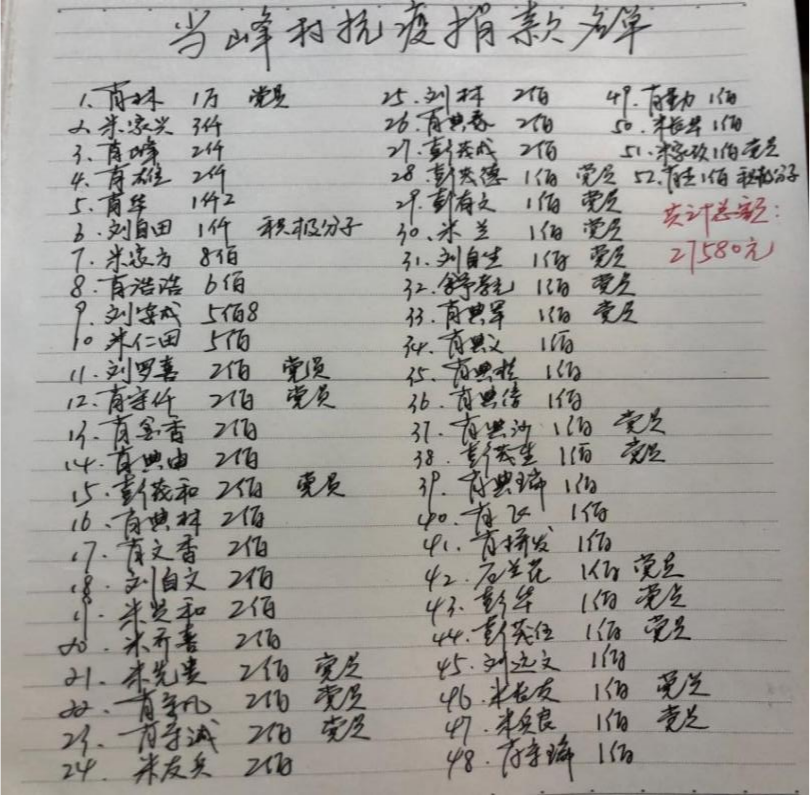 当峰村抗疫捐款名单
1、肖林 1万 党员
2、米家兴 3仟
3、肖峰 2仟
4、肖雄 2仟
5、肖华 1仟2
6、刘自田 1仟 积极分子
7、米家方 8佰
8、肖浩浩 6佰
9、刘安成 5佰8
10、米仁田 5佰
11、刘罗喜 2佰 党员
12、肖守仟 2佰 党员
13、肖金香 2佰
14、肖典由 2佰
15、彭茂和 2佰 党员
16、肖典林 2佰
17、肖文香 2佰
18、刘自文 2佰
19、米兴和 2佰
20、米开喜 2佰
21、米先贵 2佰 党员
22、肖守凡 2佰 党员
23、肖守诚 2佰 党员
24、米友兵 2佰
25、刘林 2佰
26、肖典春 2佰
27、彭茂成 2佰
28、彭茂德 1佰 党员
29、彭有文 1佰 党员
30、米兰 1佰 党员
31、刘自生 1佰 党员
32、 1佰 党员
33、肖典军 1佰 党员
34、肖典文 1佰
35、肖典桂 1佰
36、肖典倍 1佰
37、肖典沙 1佰 党员
38、彭茂生 1佰 党员
39、肖典瑞 1佰
40、肖飞 1佰
41、肖拼发 1佰
42、石兰花 1佰 党员
43、彭华 1佰 党员
44、彭茂伍 1佰 党员
45、刘远文 1佰
46、米长友 1佰 党员
47、米兵良 1佰 党员
48、肖守瑞 1佰
49、肖勤 1佰
50、米长华 1佰
51、米家玖 1佰 党员
52、肖 1佰 积极分子
共计总额：
27580元